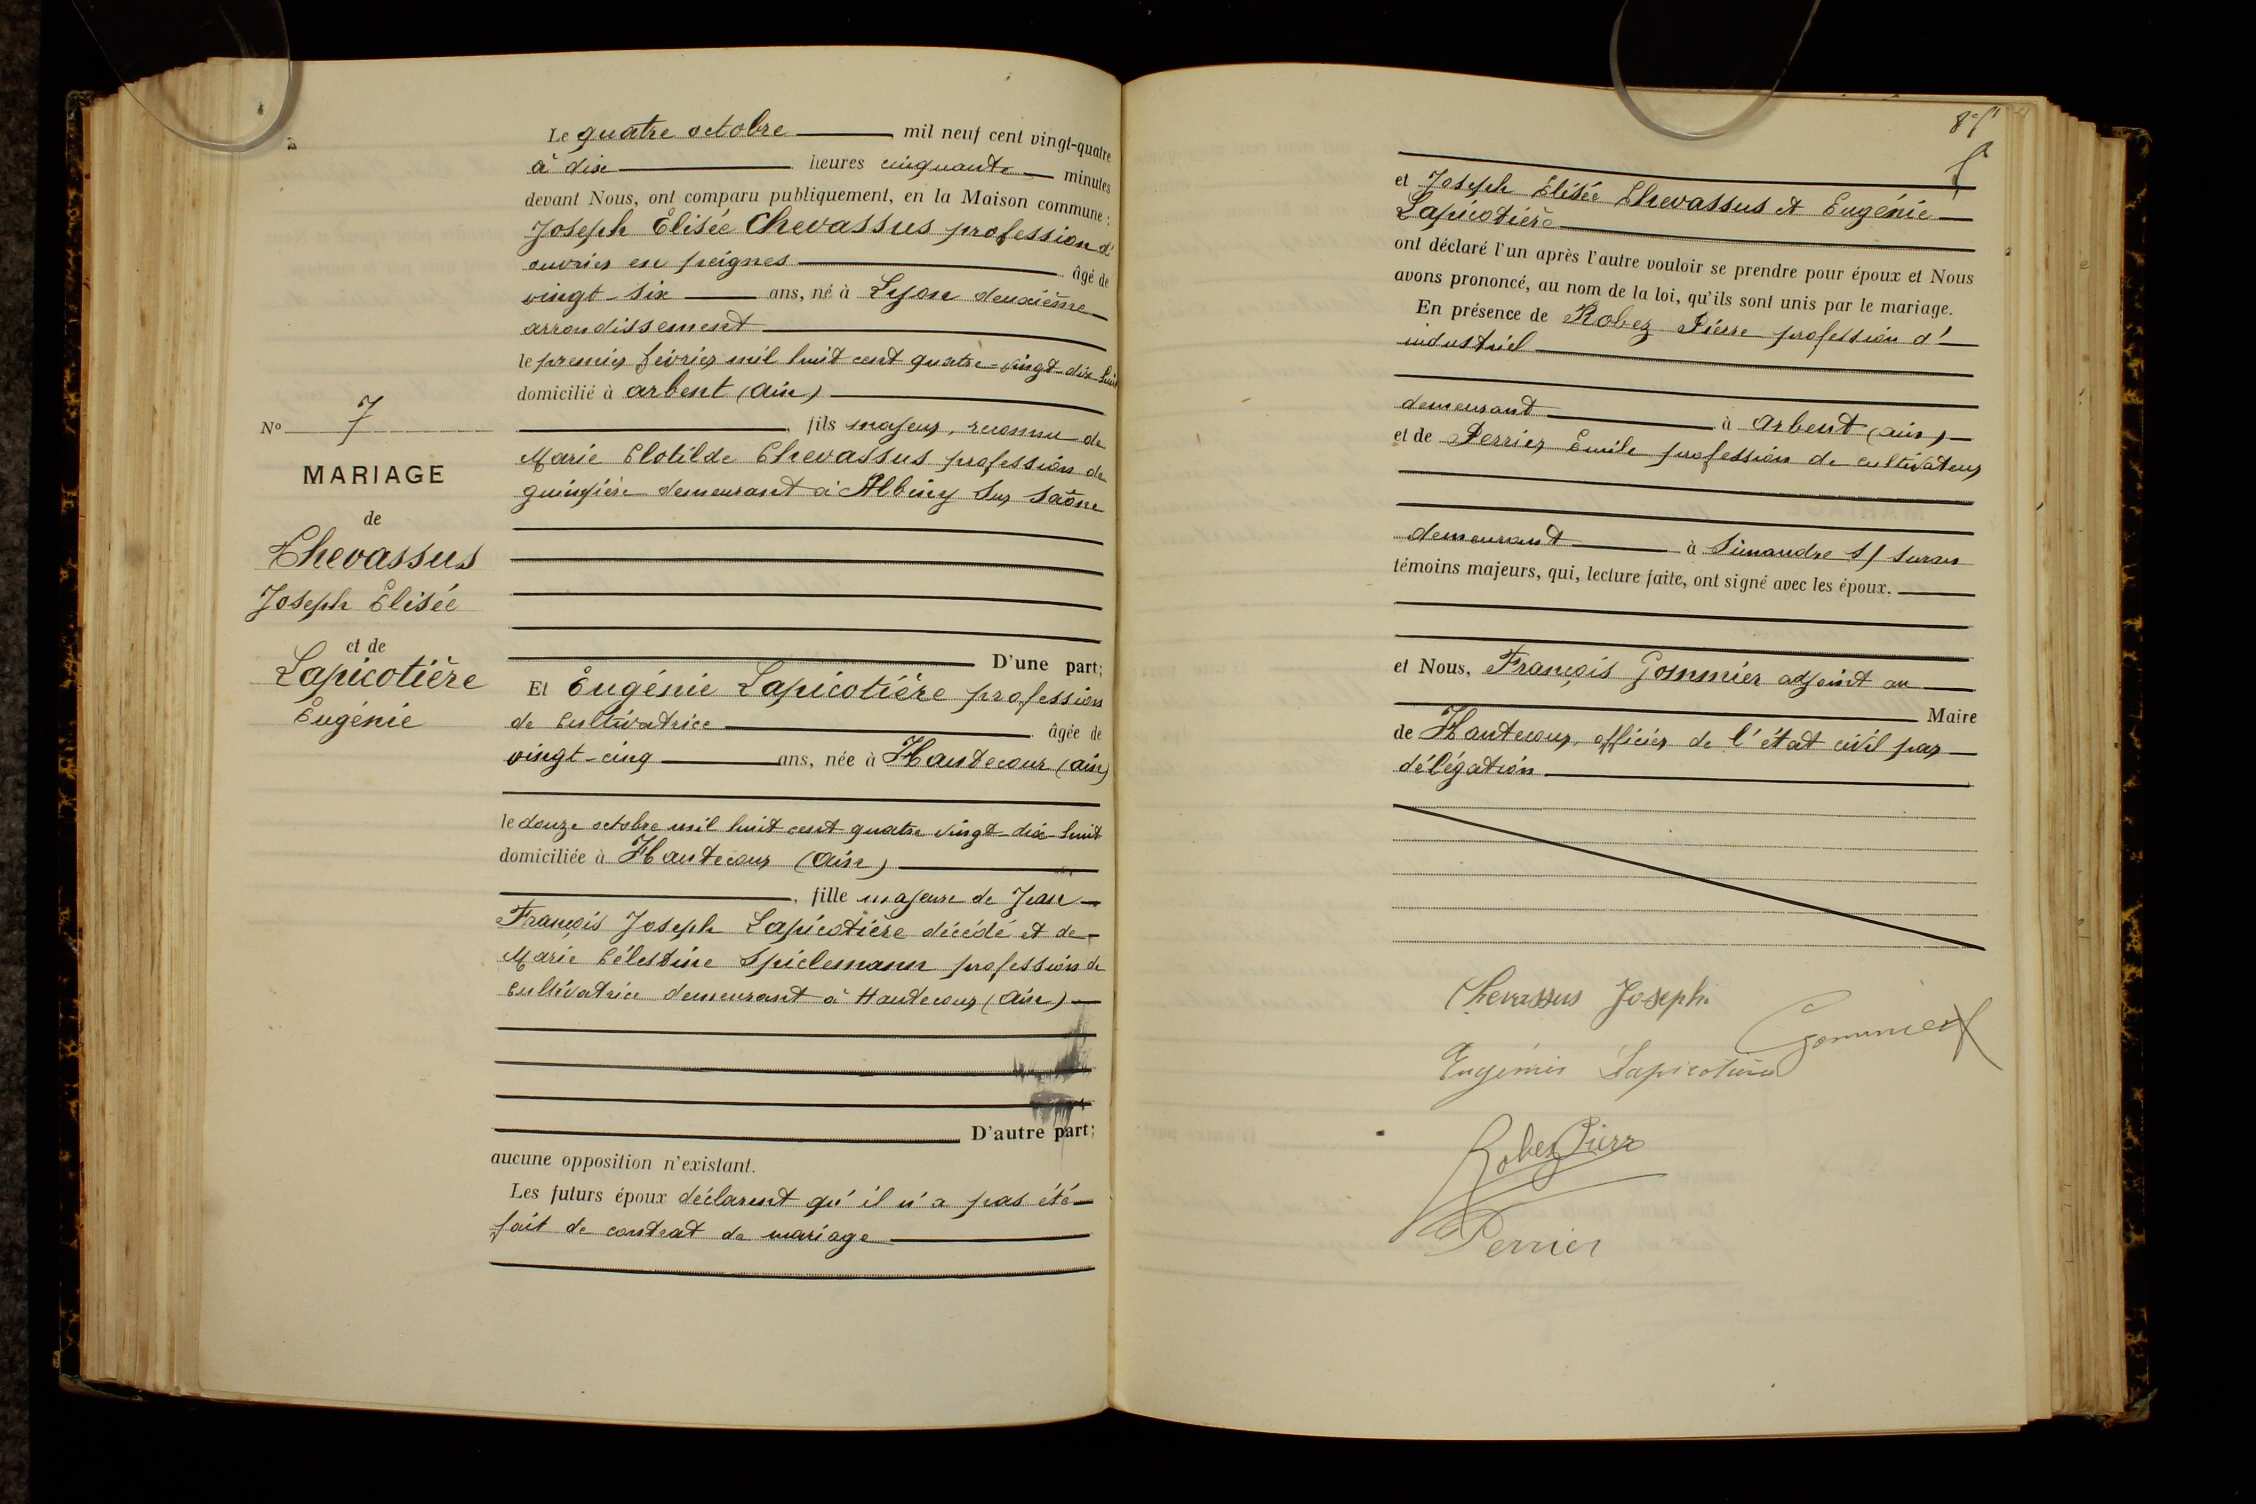 Le quatre octobre mil neuf cent vingt-quatre
à dix heures cinquante minutes
devant Nous, ont comparu publiquement, en la Maison commune :
Joseph Elisée Chevassus profession d'
ouvrier en peignes âgé de
vingt-six ans, né à Lyon deuxième
arrondissement
le premier février mil huit cent quatre-vingt-dix-huit
domicilié à arbent (Ain)
, fils majeur, reconnu de
Marie Clotilde Chevassus profession de
demeurant à Albigny sur Saône
D'une part;
Et Eugénie Lapicotière profession
de cultivatrice âgée de
vingt-cinq ans, née à Hautecour (ain)
le douze octobre mil huit cent quatre vingt-dix-huit
domiciliée à Hautecour (Ain)
, fille majeure de Jean
François Joseph Lapicotière décédé et de
Marie Célestine Spiclemann profession de
cultivatrice demeurant à Hautecour (Ain)
D'autre part;
aucune opposition n'existant.
Les futurs époux déclarent qu'il n'a pas été
fait de contrat de mariage
No 7
MARIAGE
de
Chevassus
Joseph Elisée
et de
Lapicotière
Eugénie
et Joseph Elisée Chevassus et Eugénie
Lapicotière
ont déclaré l'un après l'autre vouloir se prendre pour époux et Nous
avons prononcé, au nom de la loi, qu'ils sont unis par le mariage.
En présence de Robez Pierre profession d'
industriel
demeurant à Arbent (ain)
et de Perrier Emile profession de cultivateur
demeurant à Simandre s/ Suran
témoins majeurs, qui, lecture faite, ont signé avec les époux.
et Nous, François Gommier adjoint au
Maire
de Hautecour, officier de l'état civil par
délégation
Chevassus Joseph
Gommier
Eugénie Lapicotière
Robez Pierre
Perrier